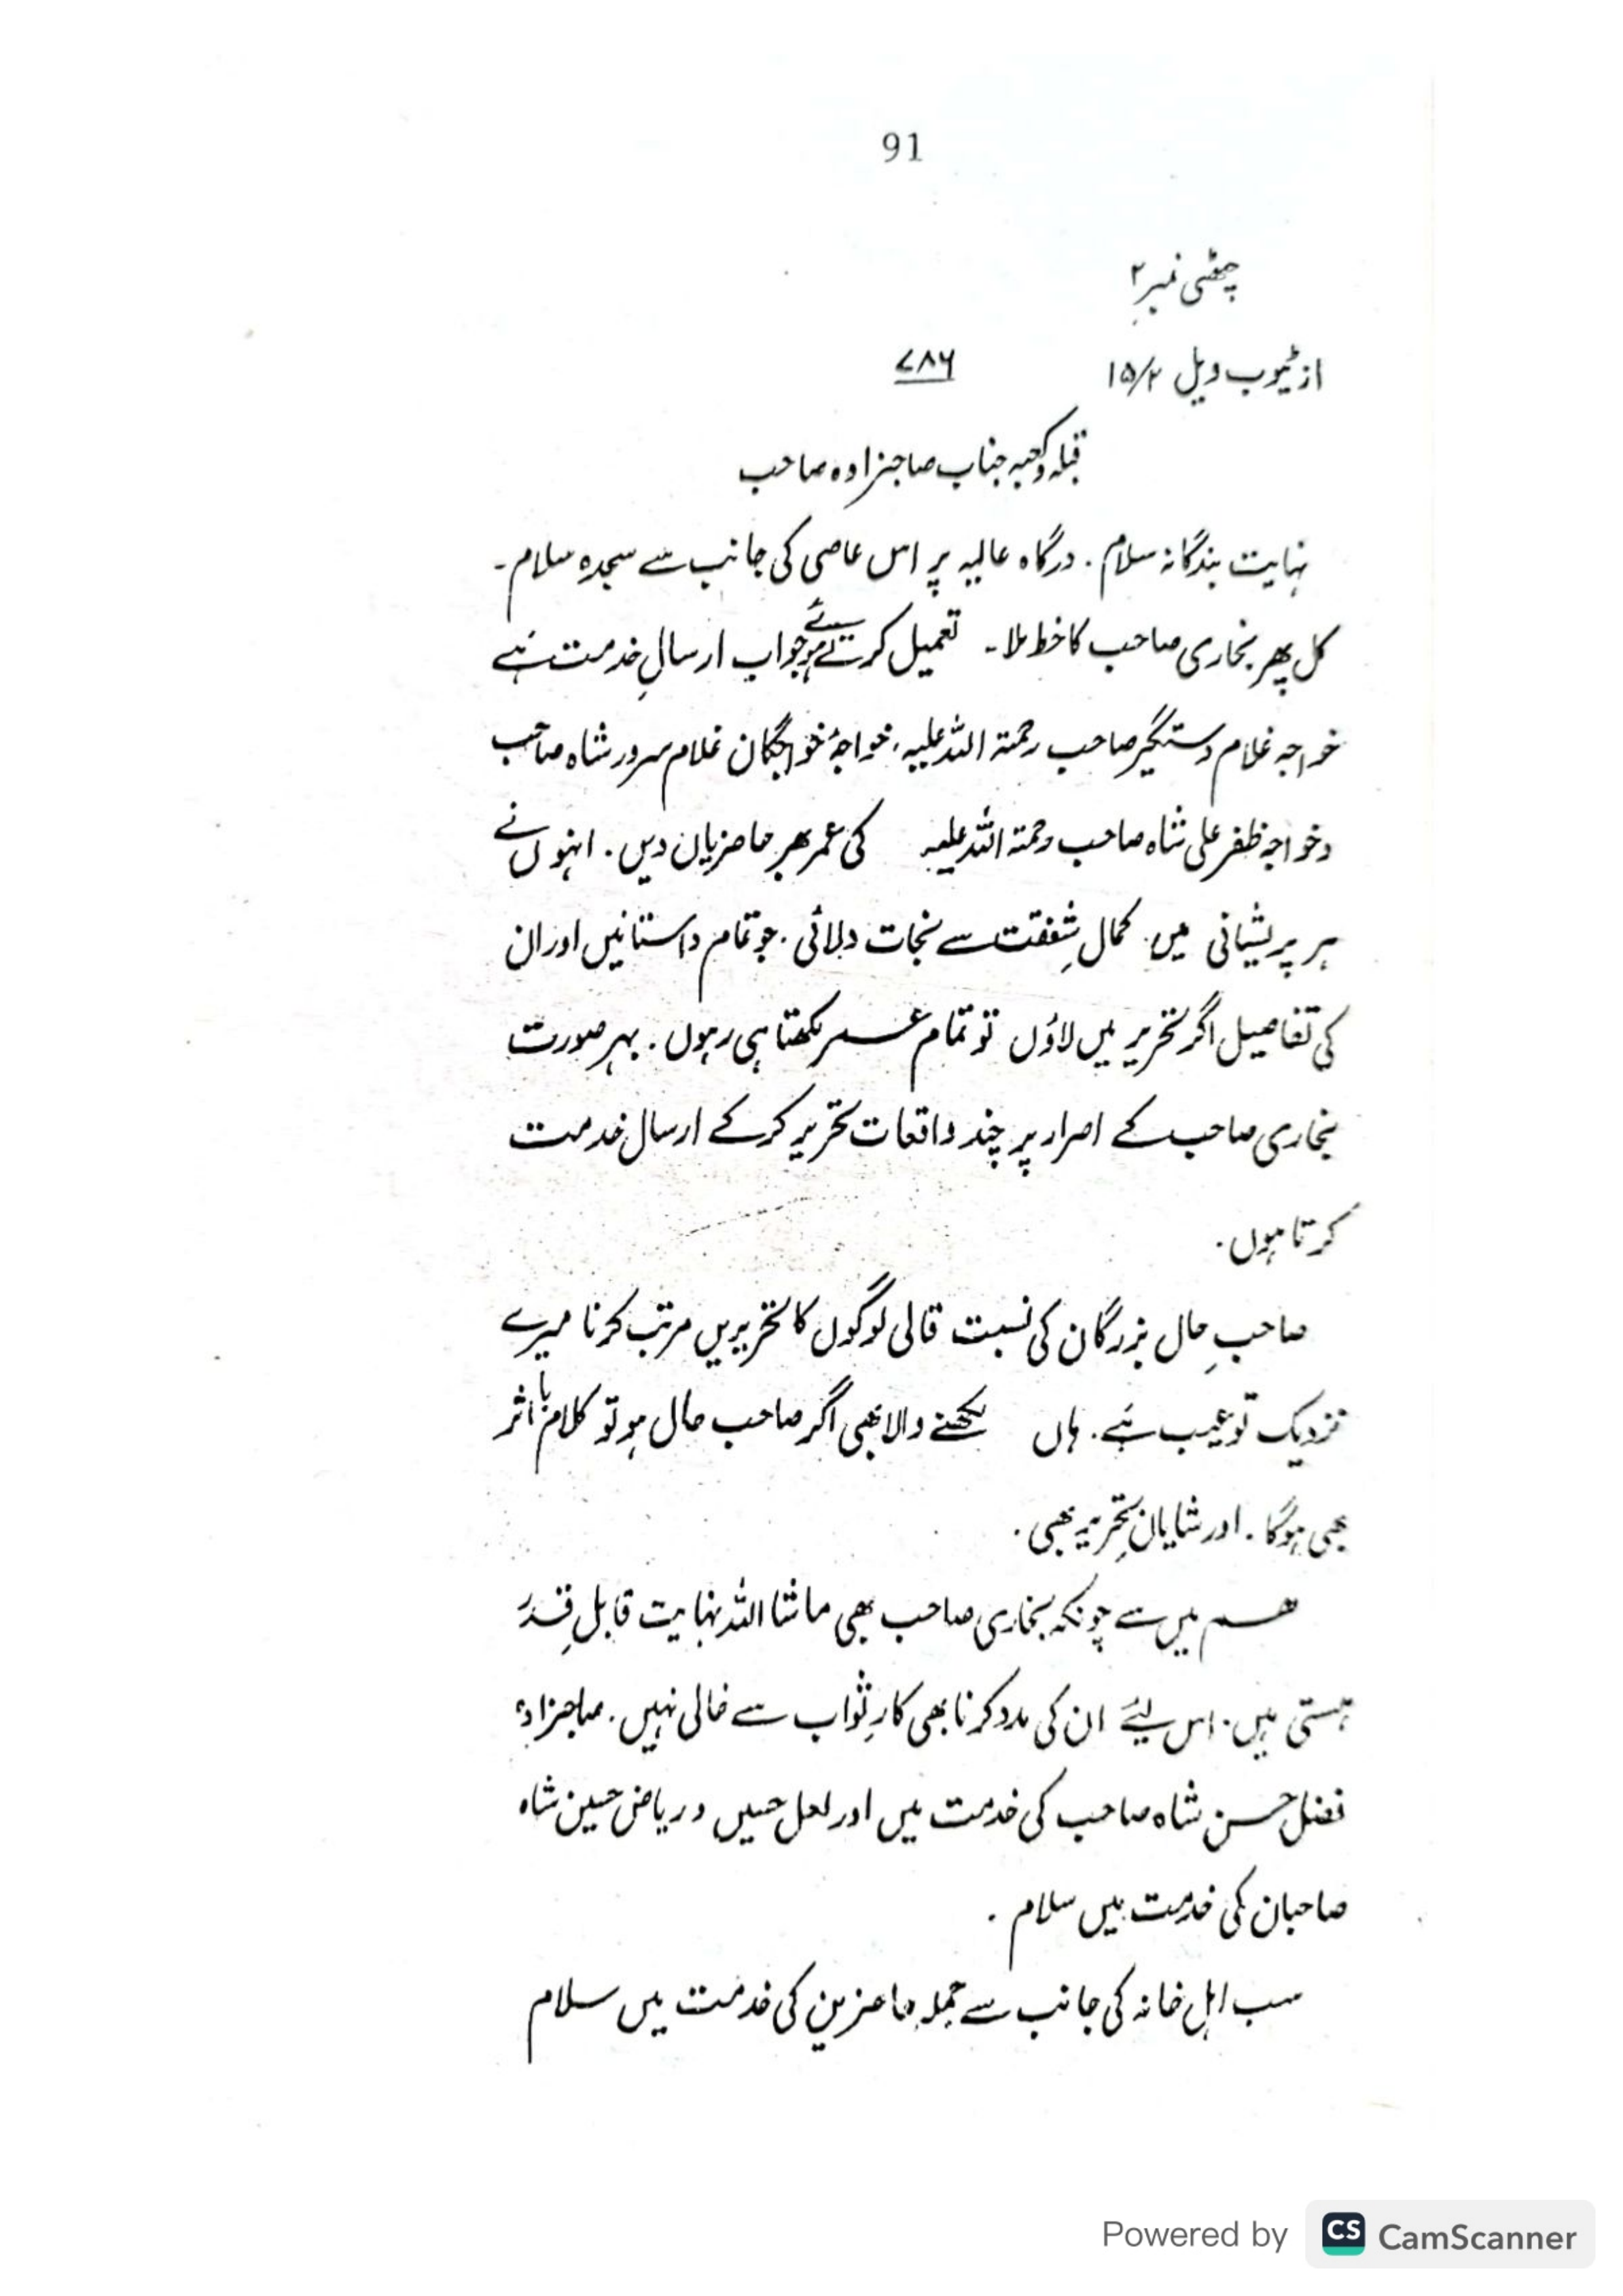 91
چٹھی نمبر ۲
از ٹیوب ویل ۱۵/۲ ۷۸۶
قبلہ و کعبہ جناب صاجنرادہ صاحب
نہایت بندگانہ سلام ۔ درگاہ عالیہ پر اس عاصی کی جانب سے سجدہ سلام ۔
کل پھر بخاری صاحب کا خط ملا ۔ تعمیل کرتے ہوئے جواب ارسالِ خدمت ہَے
خواجہ غلام دستگیر صاحب رحمتہ اللہ علیہ ، خواجۂ خواجگان غلام سرور شاہ صاحب
و خواجہ ظفر علی شاہ صاحب رحمتہ اللہ علیہ کی عمر بھر حاضریاں دیں ۔ انہوں نے
ہر پریشانی میں کمالِ شفقت سے نجات دلائی ۔ جو تمام داستانیں اور ان
کی تفاصیل اگر تحریر میں لاؤں تو تمام عمر لکھتا ہی رہوں ۔ بہر صورت
بخاری صاحب کے اصرار پر چند واقعات تحریر کر کے ارسال خدمت
کرتا ہوں ۔
صاحبِ حال بزرگان کی نسبت قالی لوگوں کا تحریریں مرتب کرنا میرے
نزدیک تو عیب ہَے ۔ ہاں لکھنے والا بھی اگر صاحب حال ہو تو کلام با اثر
بھی ہوگا ۔ اور شایانِ تحریر بھی ۔
ہم میں سے چونکہ بخاری صاحب بھی ماشا اللہ نہایت قابلِ قدر
ہستی ہیں ۔ اس لیٔے ان کی مدد کرنا بھی کارِ ثواب سے خالی نہیں ۔ صاجنرادہ
فضل حسن شاہ صاحب کی خدمت میں اور لعل حسین و ریاض حسین شاہ
صاحبان کی خدمت میں سلام ۔
سب اہل خانہ کی جانب سے جملہ حاضرین کی خدمت میں سلام
Powered by CS CamScanner